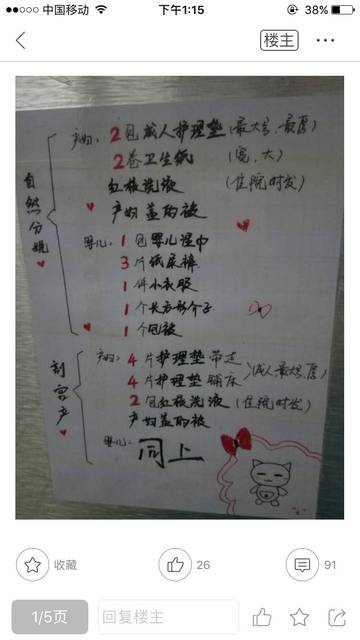 中国移动 下午1:15 38%
楼主
自然分娩
产妇: 2包成人护理垫(最大号、最厚)
2卷卫生纸 (宽、大)
红核洗液 (住院时发)
产妇盖的被
婴儿: 1包婴儿湿巾
3片纸尿裤
1件小衣服
1个长方形介子
1个包被
剖宫产
产妇: 4片护理垫 带走
4片护理垫 铺床 (成人最大、厚)
2包红核洗液 (住院时发)
产妇盖的被
婴儿: 同上
收藏 26 91
1/5页 回复楼主